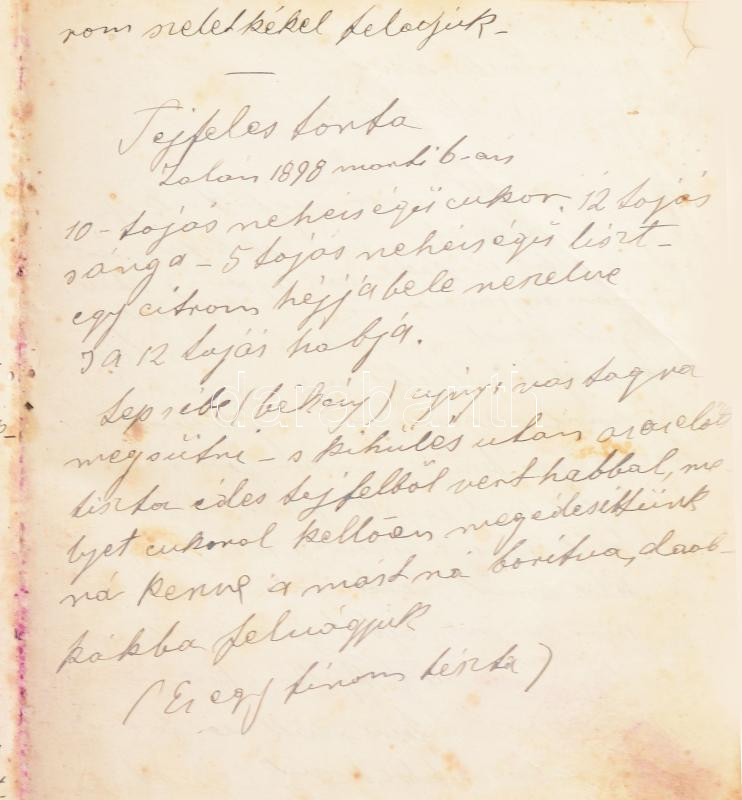 rom szeletkékel feladjuk-
Tejfeles tonta
Zalán 1898 marti 6-án
10-tojás neheiségü cukor. 12 tojás
sánga - 5 tojás neheiségü liszt-
egy citrom héjjábele reszelve
s a 12 tojás habja.
Tepsibe (bekány) ujnyi vastagra
megsütni - s kihülés utan
tiszta édes tejfelböl vert habbal, me
lyet cukoral kellöen megédesittünk
rá kenve a mást rá boritva, daab-
kákba felvágjuk
(Ez egy finom tészta)
darabanth